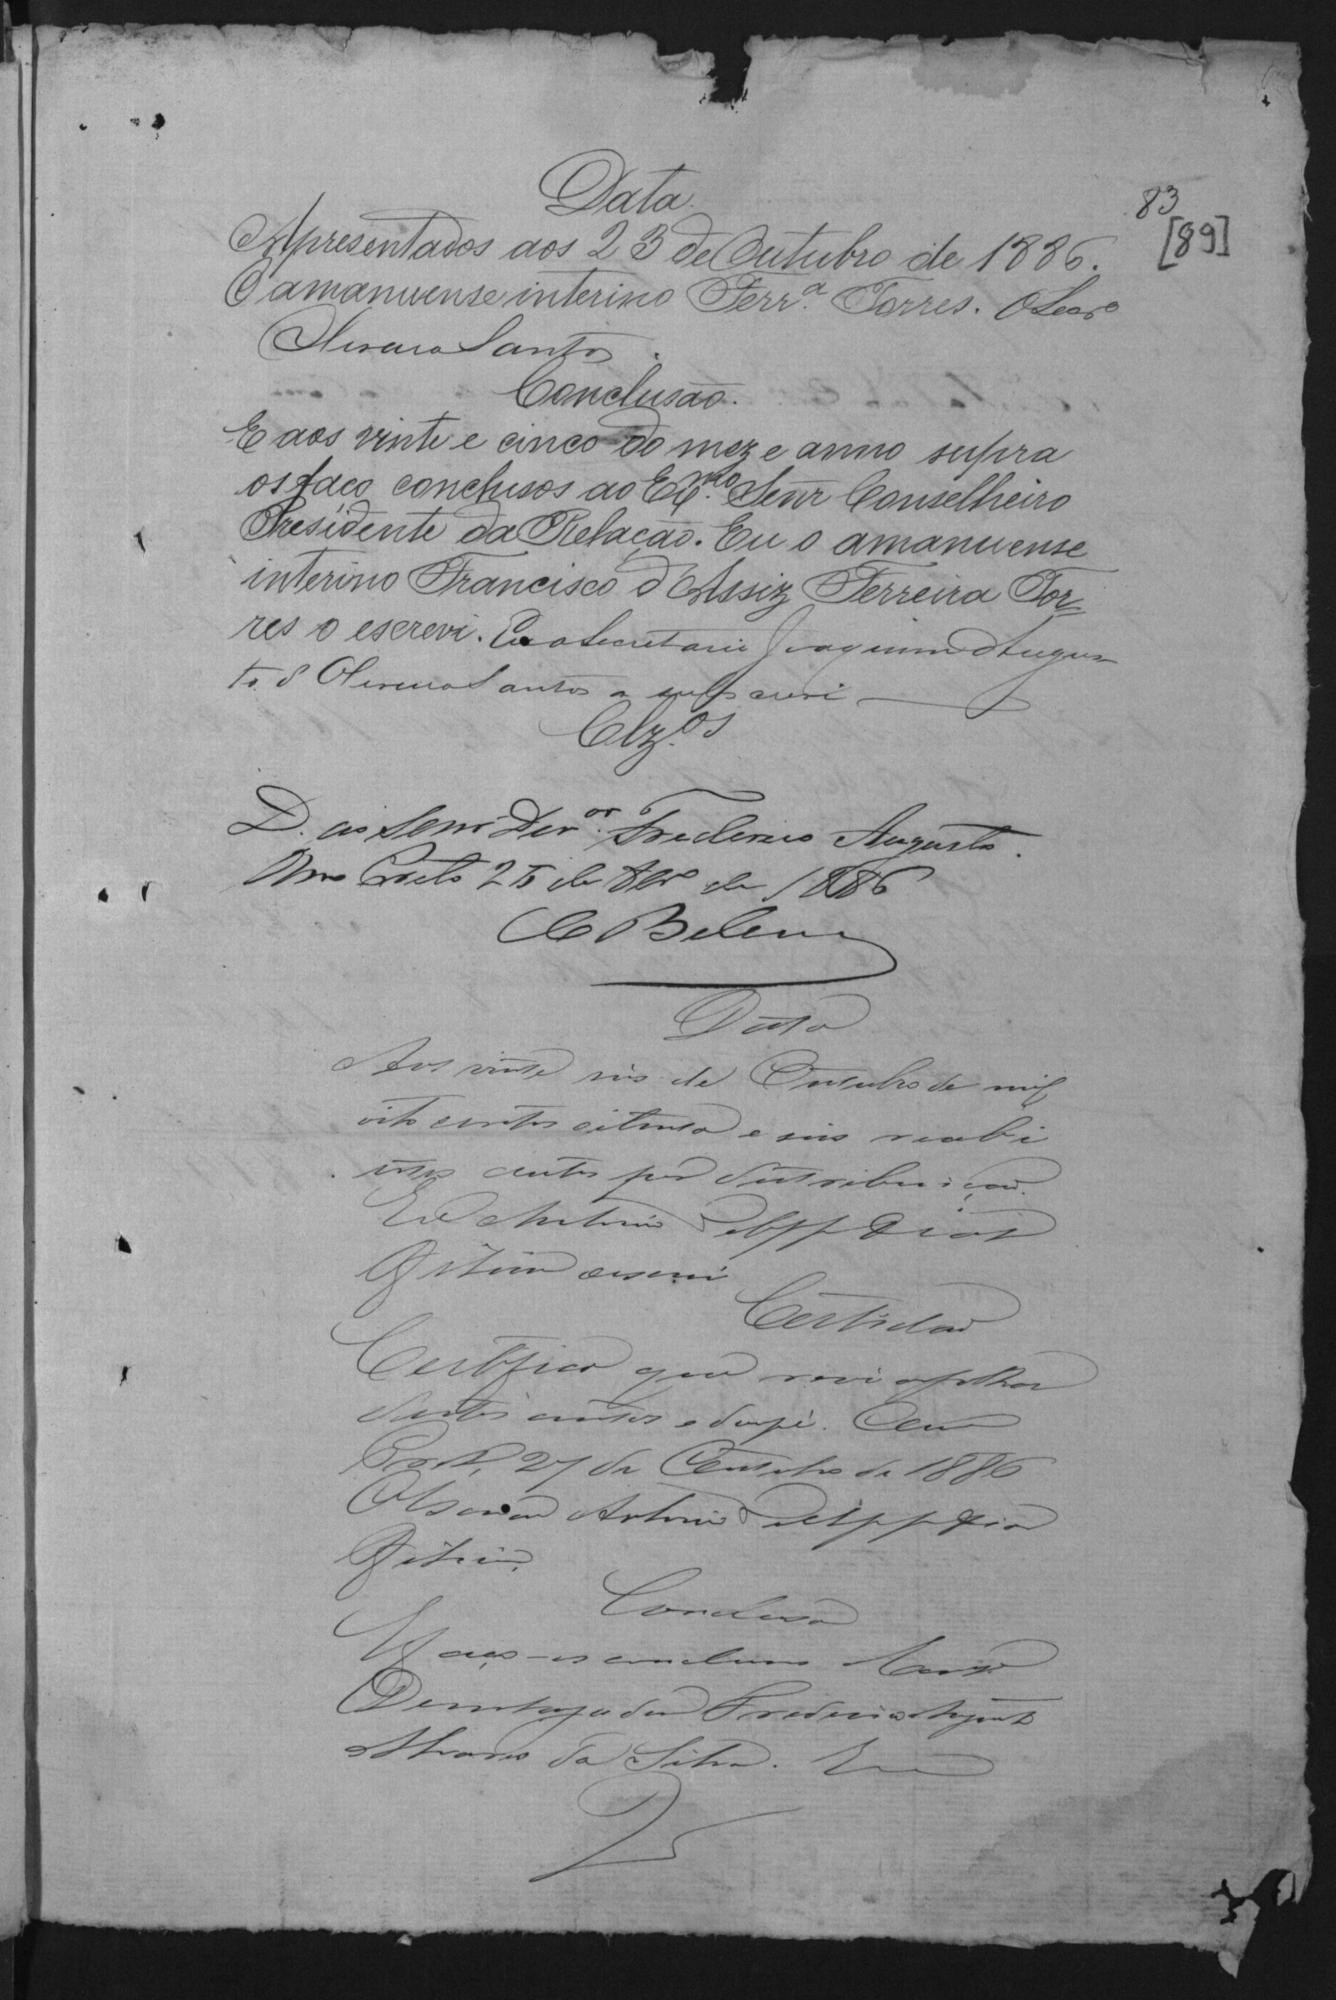 83
[89]
Data.
Apresentados aos 23 de Outubro de 1886.
O amanuense interino Ferr.ª Torres. O Secr.o
Santos.
Conclusão.
E aos vinte e cinco do mez e anno supra
os faço conclusos ao Ex.mo Senr Conselheiro
Presidente da Relação. Eu o amanuense
interino Francisco d'Assiz Ferreira Tor-
res o escrevi. Eu o Secretario Joaquim Augus
to d' Santos o subscrevi
Clz.os
D. ao Senr Dez.or Frederico Augusto.
Ouro Preto 25 de de 1886
C Belem
Data
Aos vinte seis de Outubro de mil
oito centos oitenta e seis recebi
estes autos por distribuição.
Eu Antonio Dias
escrevi
Certidão
Certifico que revi as folhas
destes autos e dou fé. Ouro
Preto, 27 de Outubro de 1886
O Escrivão Antonio Dias
Conclusão
Faço-os conclusos
Desembargador Frederico Augusto
Alvares da Silva. Eu